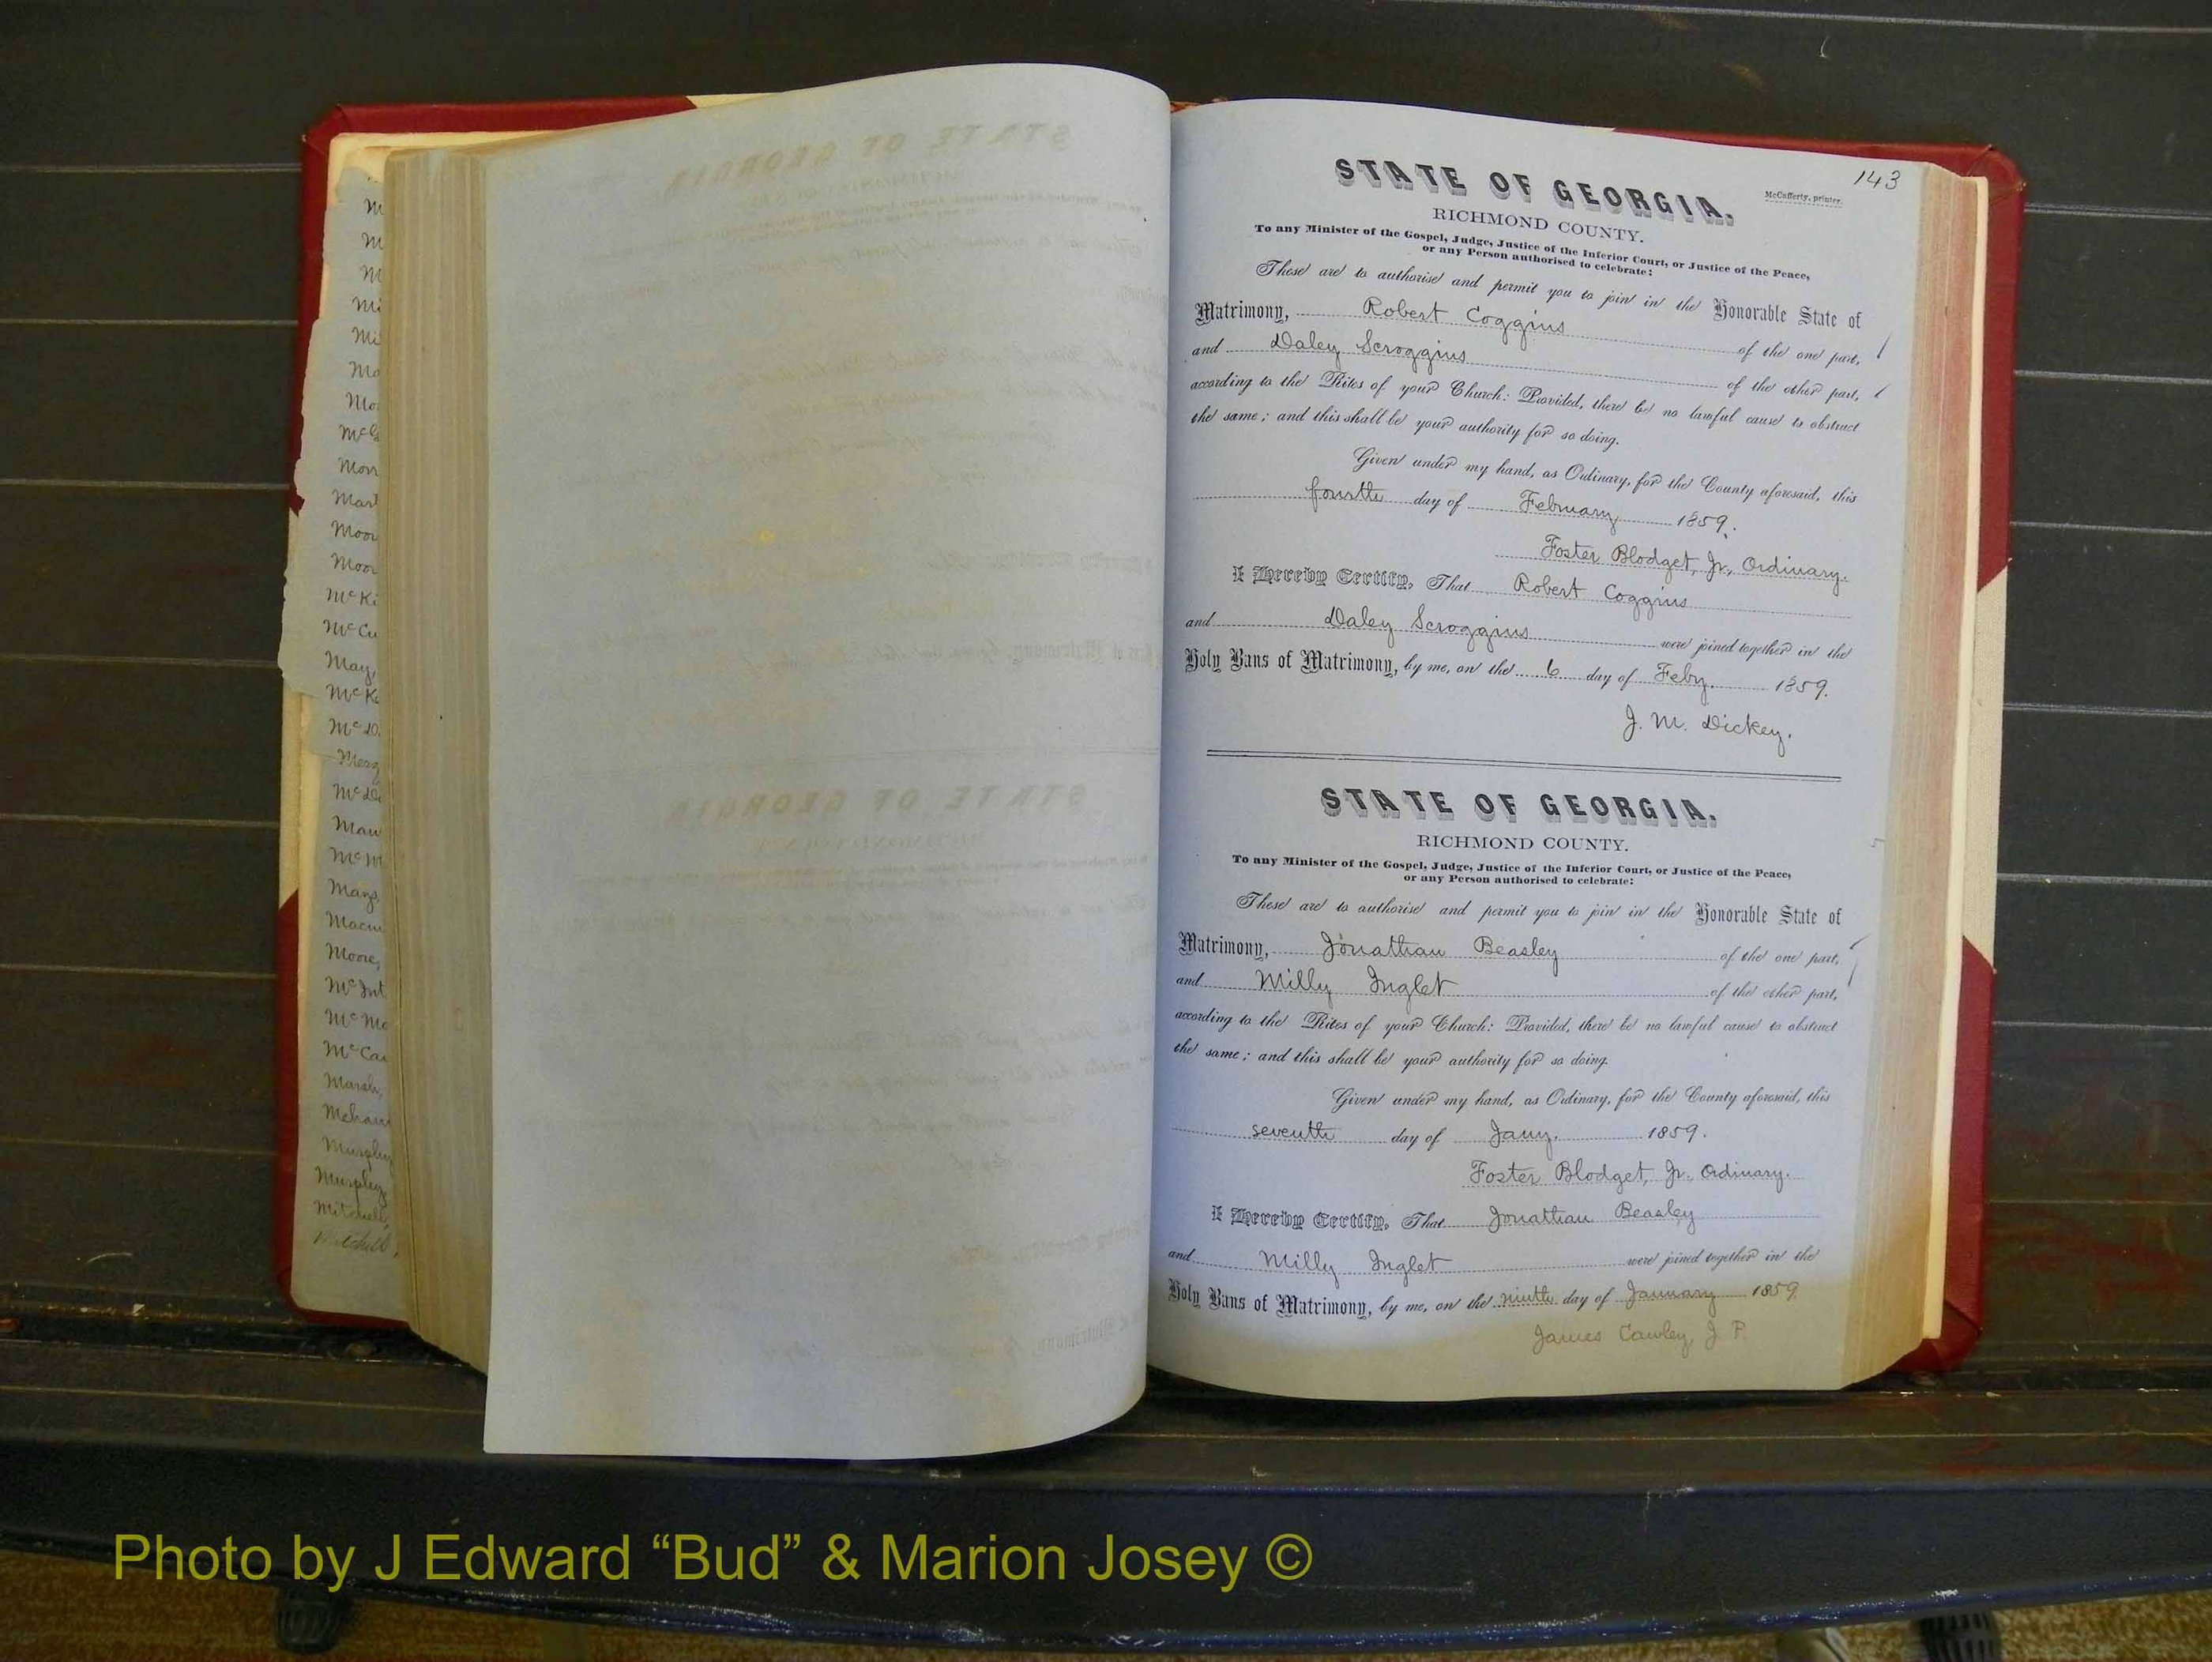 143
STATE OF GEORGIA.
McCafferty, printer.
RICHMOND COUNTY.
To any Minister of the Gospel, Judge, Justice of the Inferior Court, or Justice of the Peace,
or any Person authorised to celebrate:
These are to authorise and permit you to join in the Honorable State of
Matrimony, Robert Coggins of the one part,
and Daley Scroggins of the other part,
according to the Rites of your Church: Provided, there be no lawful cause to obstruct
the same; and this shall be your authority for so doing.
Given under my hand, as Ordinary, for the County aforesaid, this
fourth day of February 1859.
Foster Blodget, Jr., Ordinary.
I Hereby Certify, That Robert Coggins
and Daley Scroggins were joined together in the
Holy Bans of Matrimony, by me, on the 6 day of Feby. 1859.
J. M. Dickey.
STATE OF GEORGIA.
RICHMOND COUNTY.
To any Minister of the Gospel, Judge, Justice of the Inferior Court, or Justice of the Peace,
or any Person authorised to celebrate:
These are to authorise and permit you to join in the Honorable State of
Matrimony, Jonathan Beasley of the one part,
and Milly Inglet of the other part,
according to the Rites of your Church: Provided, there be no lawful cause to obstruct
the same; and this shall be your authority for so doing.
Given under my hand, as Ordinary, for the County aforesaid, this
seventh day of Jany. 1859.
Foster Blodget, Jr. Ordinary.
I Hereby Certify, That Jonathan Beasley
and Milly Inglet were joined together in the
Holy Bans of Matrimony, by me, on the ninth day of January 1859
James Cawley, J. P.
M
M
M
Mi
Mi
Ma
Mo
McG
Morr
Mart
Moor
Moor
McKi
McCu
May,
McK
McD
McDa
Mau
McM
Mays
Macm
Moore,
McInt
McMc
McCa
Marsh,
Mehan
Murphy
Murphy
Mitchell,
Mitchell,
Photo by J Edward “Bud” & Marion Josey ©